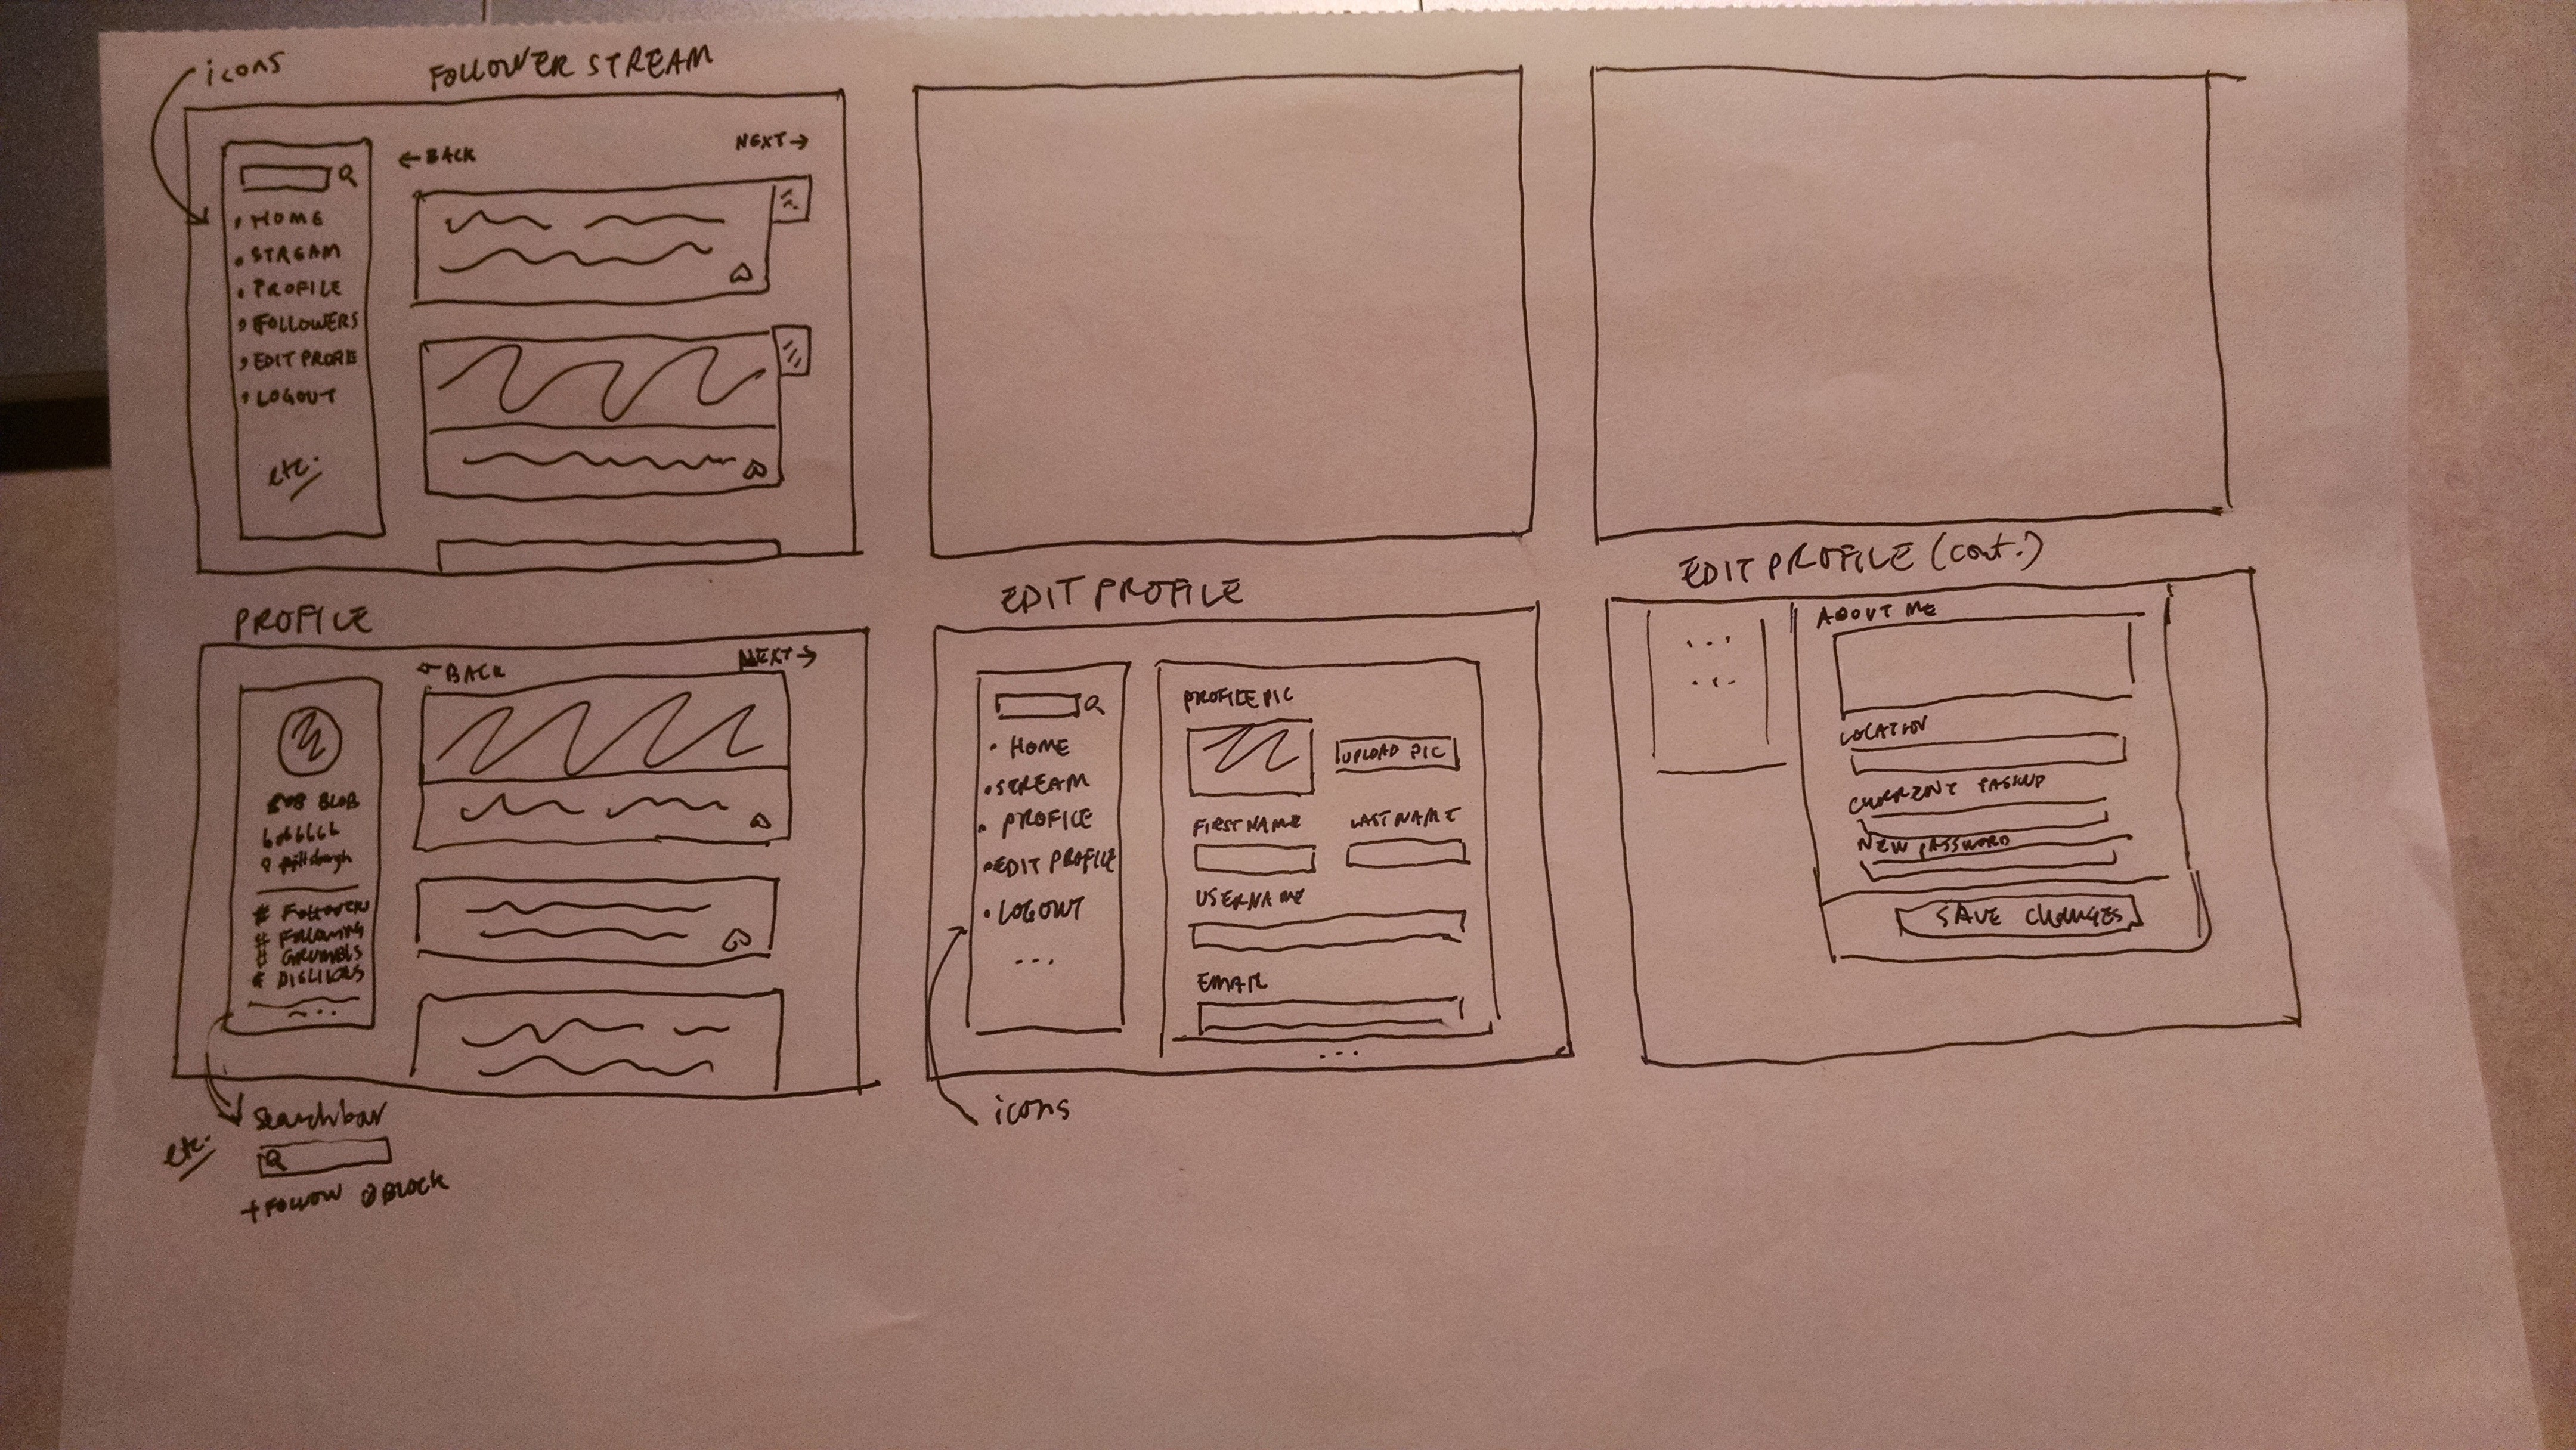 icons
FOLLOWER STREAM
← BACK
NEXT →
• HOME
• STREAM
• PROFILE
• FOLLOWERS
• EDIT PROFIE
• LOGOUT
etc.
PROFILE
← BACK
NEXT →
BOB BLOB
bobblob
pittsburgh
# FOLLOWERS
# FOLLOWING
# GRUMBLS
# DISLIKES
...
searchbar
etc.
+ FOLLOW ⊘ BLOCK
EDIT PROFILE
• HOME
• STREAM
• PROFILE
• EDIT PROFILE
• LOGOUT
...
PROFILE PIC
UPLOAD PIC
FIRST NAME
LAST NAME
USERNAME
EMAIL
...
icons
EDIT PROFILE (cont.)
...
...
ABOUT ME
LOCATION
CURRENT
NEW PASSWORD
SAVE CHANGES